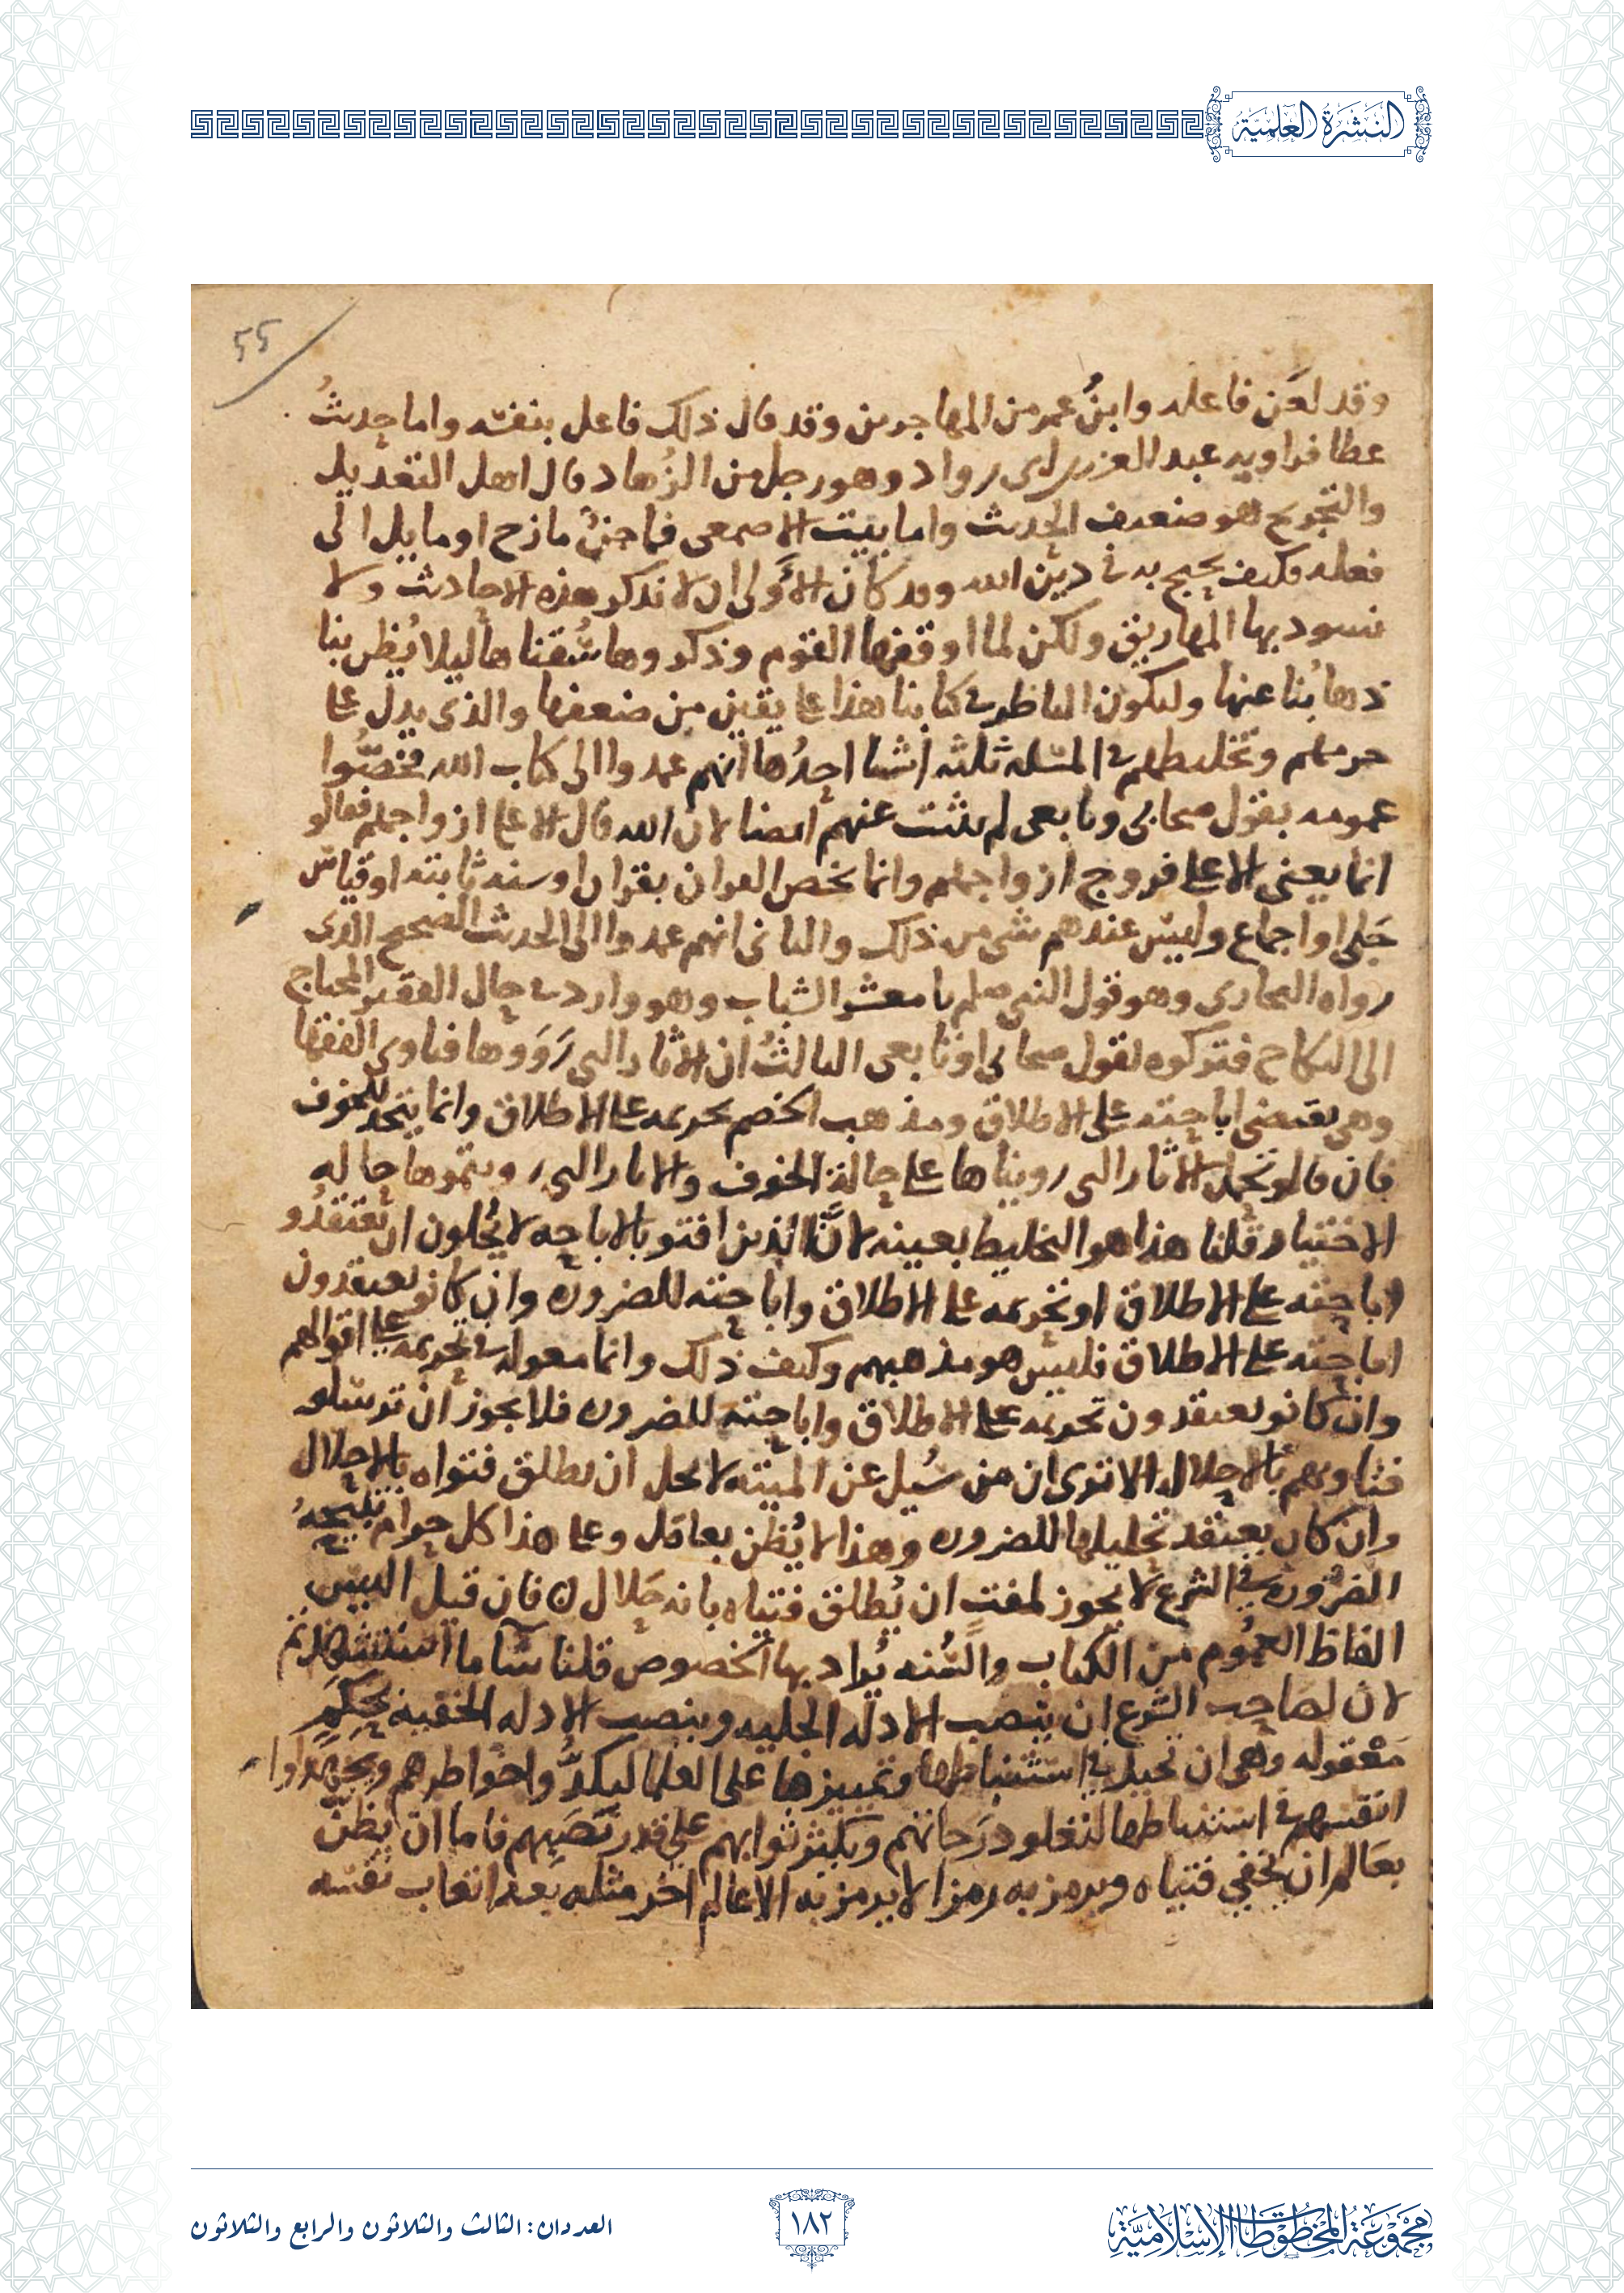 النشرة العلمية
٥٥
وقد لعن فاعله وابنُ عمر من المهاجرين وقد قال ذلك فاعل بنفسه واما حديثُ
عطا فراويه عبد العزيز ابن ابى رواد وهو رجل من الزُهاد قال اهل التعديل
والتجريح هو ضعيف الحديث واما بيت الاصمعى فماجنٌ مازح او مايل الى
فعله فكيف يحتج به فى دين الله وقد كان الأَولى ان لا نذكر هذه الاحاديث ولا
نسود بها المهاريق ولكن لما اوقفها القوم وذكروها سُقناها ليلا يُظن بنا
ذهابُنا عنها وليكون الناظر فى كتابنا هذا على يقين من ضعفها والذى يدل على
حرمتهم وتخليطهم فى المسله ثلثه اشيا احدُها انهم عمدوا الى كتاب الله فخصُّوا
عمومه بقول صحابى وتابعى لم يثبت عنهم ايضا لان الله قال الا على ازواجهم فقالو
انما يعنى الا على فروج ازواجهم وانما يخص القران بقران او سنه ثابته او قياس
جَلى او اجماع وليس عندهم شى من ذلك والثانى انهم عمدوا الى الحديث الصحيح الذى
رواه البخارى وهو قول النبى صلعم يا معشر الشباب وهو وارد فى حال الفقير المحتاج
الى النكاح فتركوه لقول صحابى او تابعى الثالثُ ان الاثار التى رَوَوها فتاوى الفقها
وهى تقتضى اباحته على الاطلاق ومذهب الخصم تحريمه على الاطلاق وانما للخوف
فان قالو نحمل الاثار التى رويناها على حالة الخوف والاثار التى رويتموها حاله
الاختيار قلنا هذا هو التخليط بعينه لانَّ الذين افتو بالاباحه لا يخلون ان يعتقدُو
اباحته على الاطلاق او تحريمه على الاطلاق واباحته للضروره وان كانو يعتقدون
اباحته على الاطلاق فليس هو مذهبهم وكيف ذلك وانما معولهم فى تحريمه على اقوالهم
وان كانو يعتقدون تحريمه على الاطلاق واباحته للضروره فلا يجوز ان ترسلو
فتاويهم بالاحلال الا ترى ان من سُيل عن الميته لا يحل ان يطلق فتواه بالاحلال
وان كان يعتقد تحليلها للضروره وهذا لا يُظن بعاقل وعلى هذا كل حرام تبيحهُ
الضروره فى الشرع لا يجوز لمفتٍ ان يُطلق فتياه بانه حَلال فان قيل اليس
الفاظ العمُوم من الكتاب والسُنه يُراد بها الخصوص قلنا سآ ما استنشدتم
لان لصاحِب الشرع ان ينصب الادله الجليه وينصب الادله الخفيه لحِكَمٍ
مَعْقوله وهى ان تحيلَ فى استنباطها وتمييزها على العلما ليكدُّوا خواطرهم ويجهدوا
انفسهم فى استنباطها لتعلو دَرَجاتهم ويكثر ثوابهم على قدر نَصَبِهم فاما ان يظنّ
بعَالم ان يخفي فتياه ويرمز به رمزا لا يرمز به الا عالم اخر مثله بعد اتعاب نفسه
مجموعة المخطوطات الإسلامية
١٨٢
العددان: الثالث والثلاثون والرابع والثلاثون